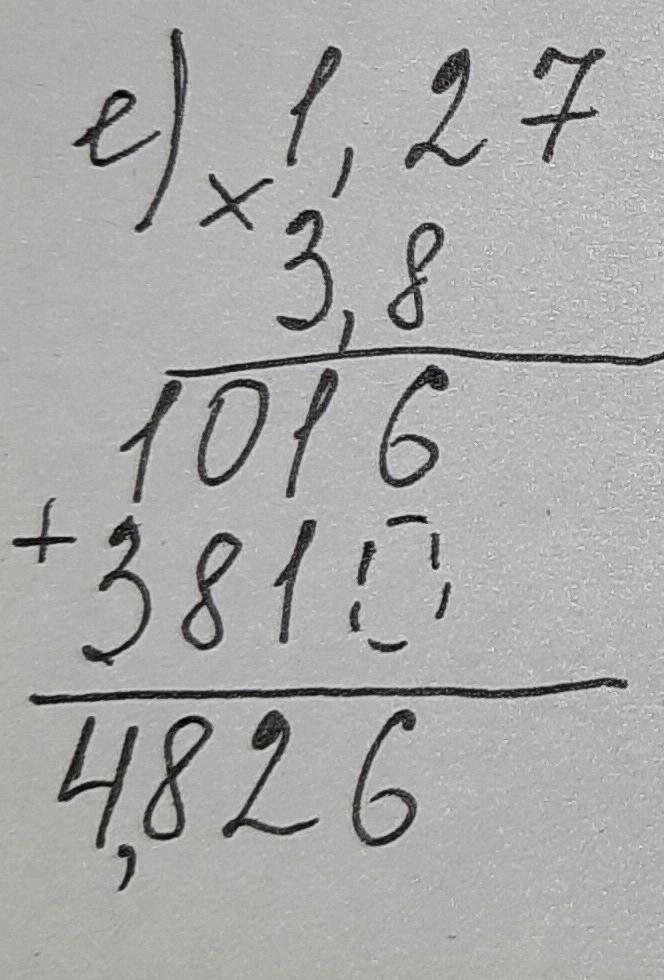 е) 1,27
× 3,8
1016
+ 3810
4,826